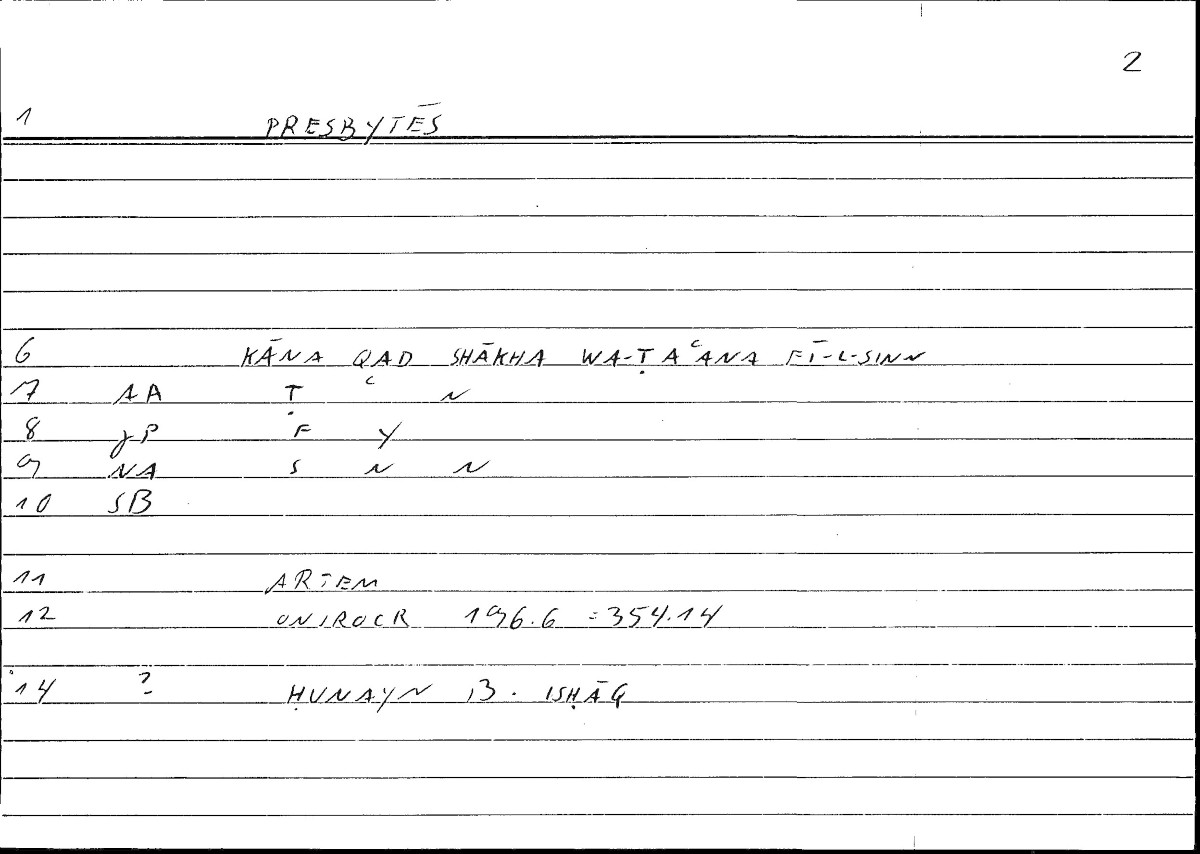 2
1 PRESBYTĒS
6 KĀNA QAD SHĀKHA WA-ṬAʿANA FĪ-L-SINN
7 AA Ṭ ʿ N
8 JP F Y
9 NA S N N
10 SB
11 ARTEM
12 ONIROCR 196.6 =354.14
14 ? ḤUNAYN B. ISḤĀQ